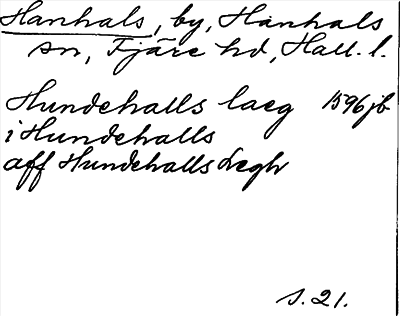 Hanhals, by, Hanhals
sn, Fjäre hd, Hall. l.
Hundehalls laeg 1596 jb
i Hundehalls
aff Hundehalls Legh
s. 21.